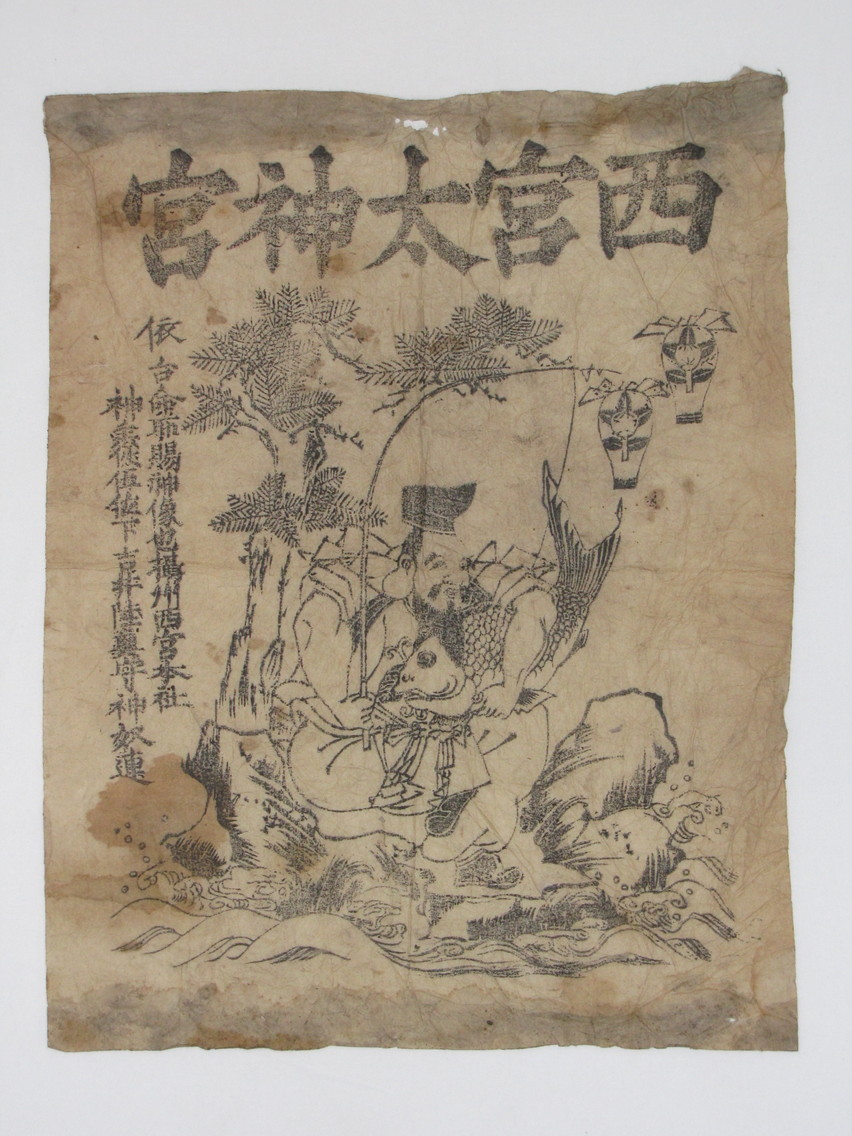 西宮太神宮
依台命所賜神像也摂州西宮本社
神主従五位下吉井陸奥守神奴連